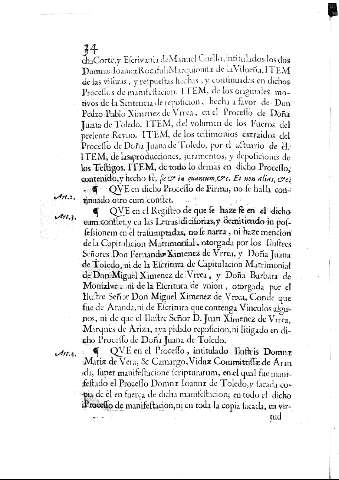 34
cha Corte, y Escrivania de Manuel Coello, intitulados los dos
Domnæ Ioannæ Rocafull Marquionitæ de la Vilueña. ITEM
de las visuras, y respuestas hechas, y continuadas en dichos
Processos de manifestacion. ITEM, de los originales mo-
tivos de la Sentencia de reposicion, hecha a favor de Don
Pedro Pablo Ximenez de Vrrea, en el Processo de Doña
Juana de Toledo. ITEM, del volumen de los Fueros del
presente Reyno. ITEM, de los testimonios extraidos del
Processo de Doña Juana de Toledo, por el actuario de él.
ITEM, de las producciones, juramentos, y deposiciones de
los Testigos. ITEM, de todo lo demas en dicho Processo,
contenido, y hecho Fè, se & in quantum, &c. Et non alias, &c.
Art.2. ¶ QVE en dicho Processo de Firma, no se halla con-
tinuado otro cum constet.
Art.3. ¶ QVE en el Registro de que se haze fe en el dicho
cum constet, y en las Letras dicisorias, y demitiendo in pos-
sessionem en el trasumptadas, no se narra, ni haze mencion
de la Capitulacion Matrimonial, otorgada por los Ilustres
Señores Don Fernando Ximenez de Vrrea, y Doña Juana
de Toledo, ni de la Escritura de Capitulacion Matrimonial
de Don Miguel Ximenez de Vrrea, y Doña Barbara de
Montalvo; ni de la Escritura de vnion, otorgada por el
Ilustre Señor Don Miguel Ximenez de Vrrea, Conde que
fue de Aranda, ni de Escritura que contenga Vinculos algu-
nos, ni de que el Ilustre Señor D. Juan Ximenez de Vrrea,
Marques de Ariza, aya pidido reposicion, ni litigado en di-
cho Processo de Doña Juana de Toledo.
Art.4. ¶ QVE en el Processo, intitulado Ilustris Domnæ
Mariæ de Vera, & Camargo, Viduæ Comitissæ de Aran
da, super manifestatione scripturarum, en el qual fue mani-
festado el Processo Domnæ Ioannæ de Toledo, y sacada co-
pia de él en fuerça de dicha manifestacion; en todo el dicho
Processo de manifestacion, ni en toda la copia sacada, en vir-
tud